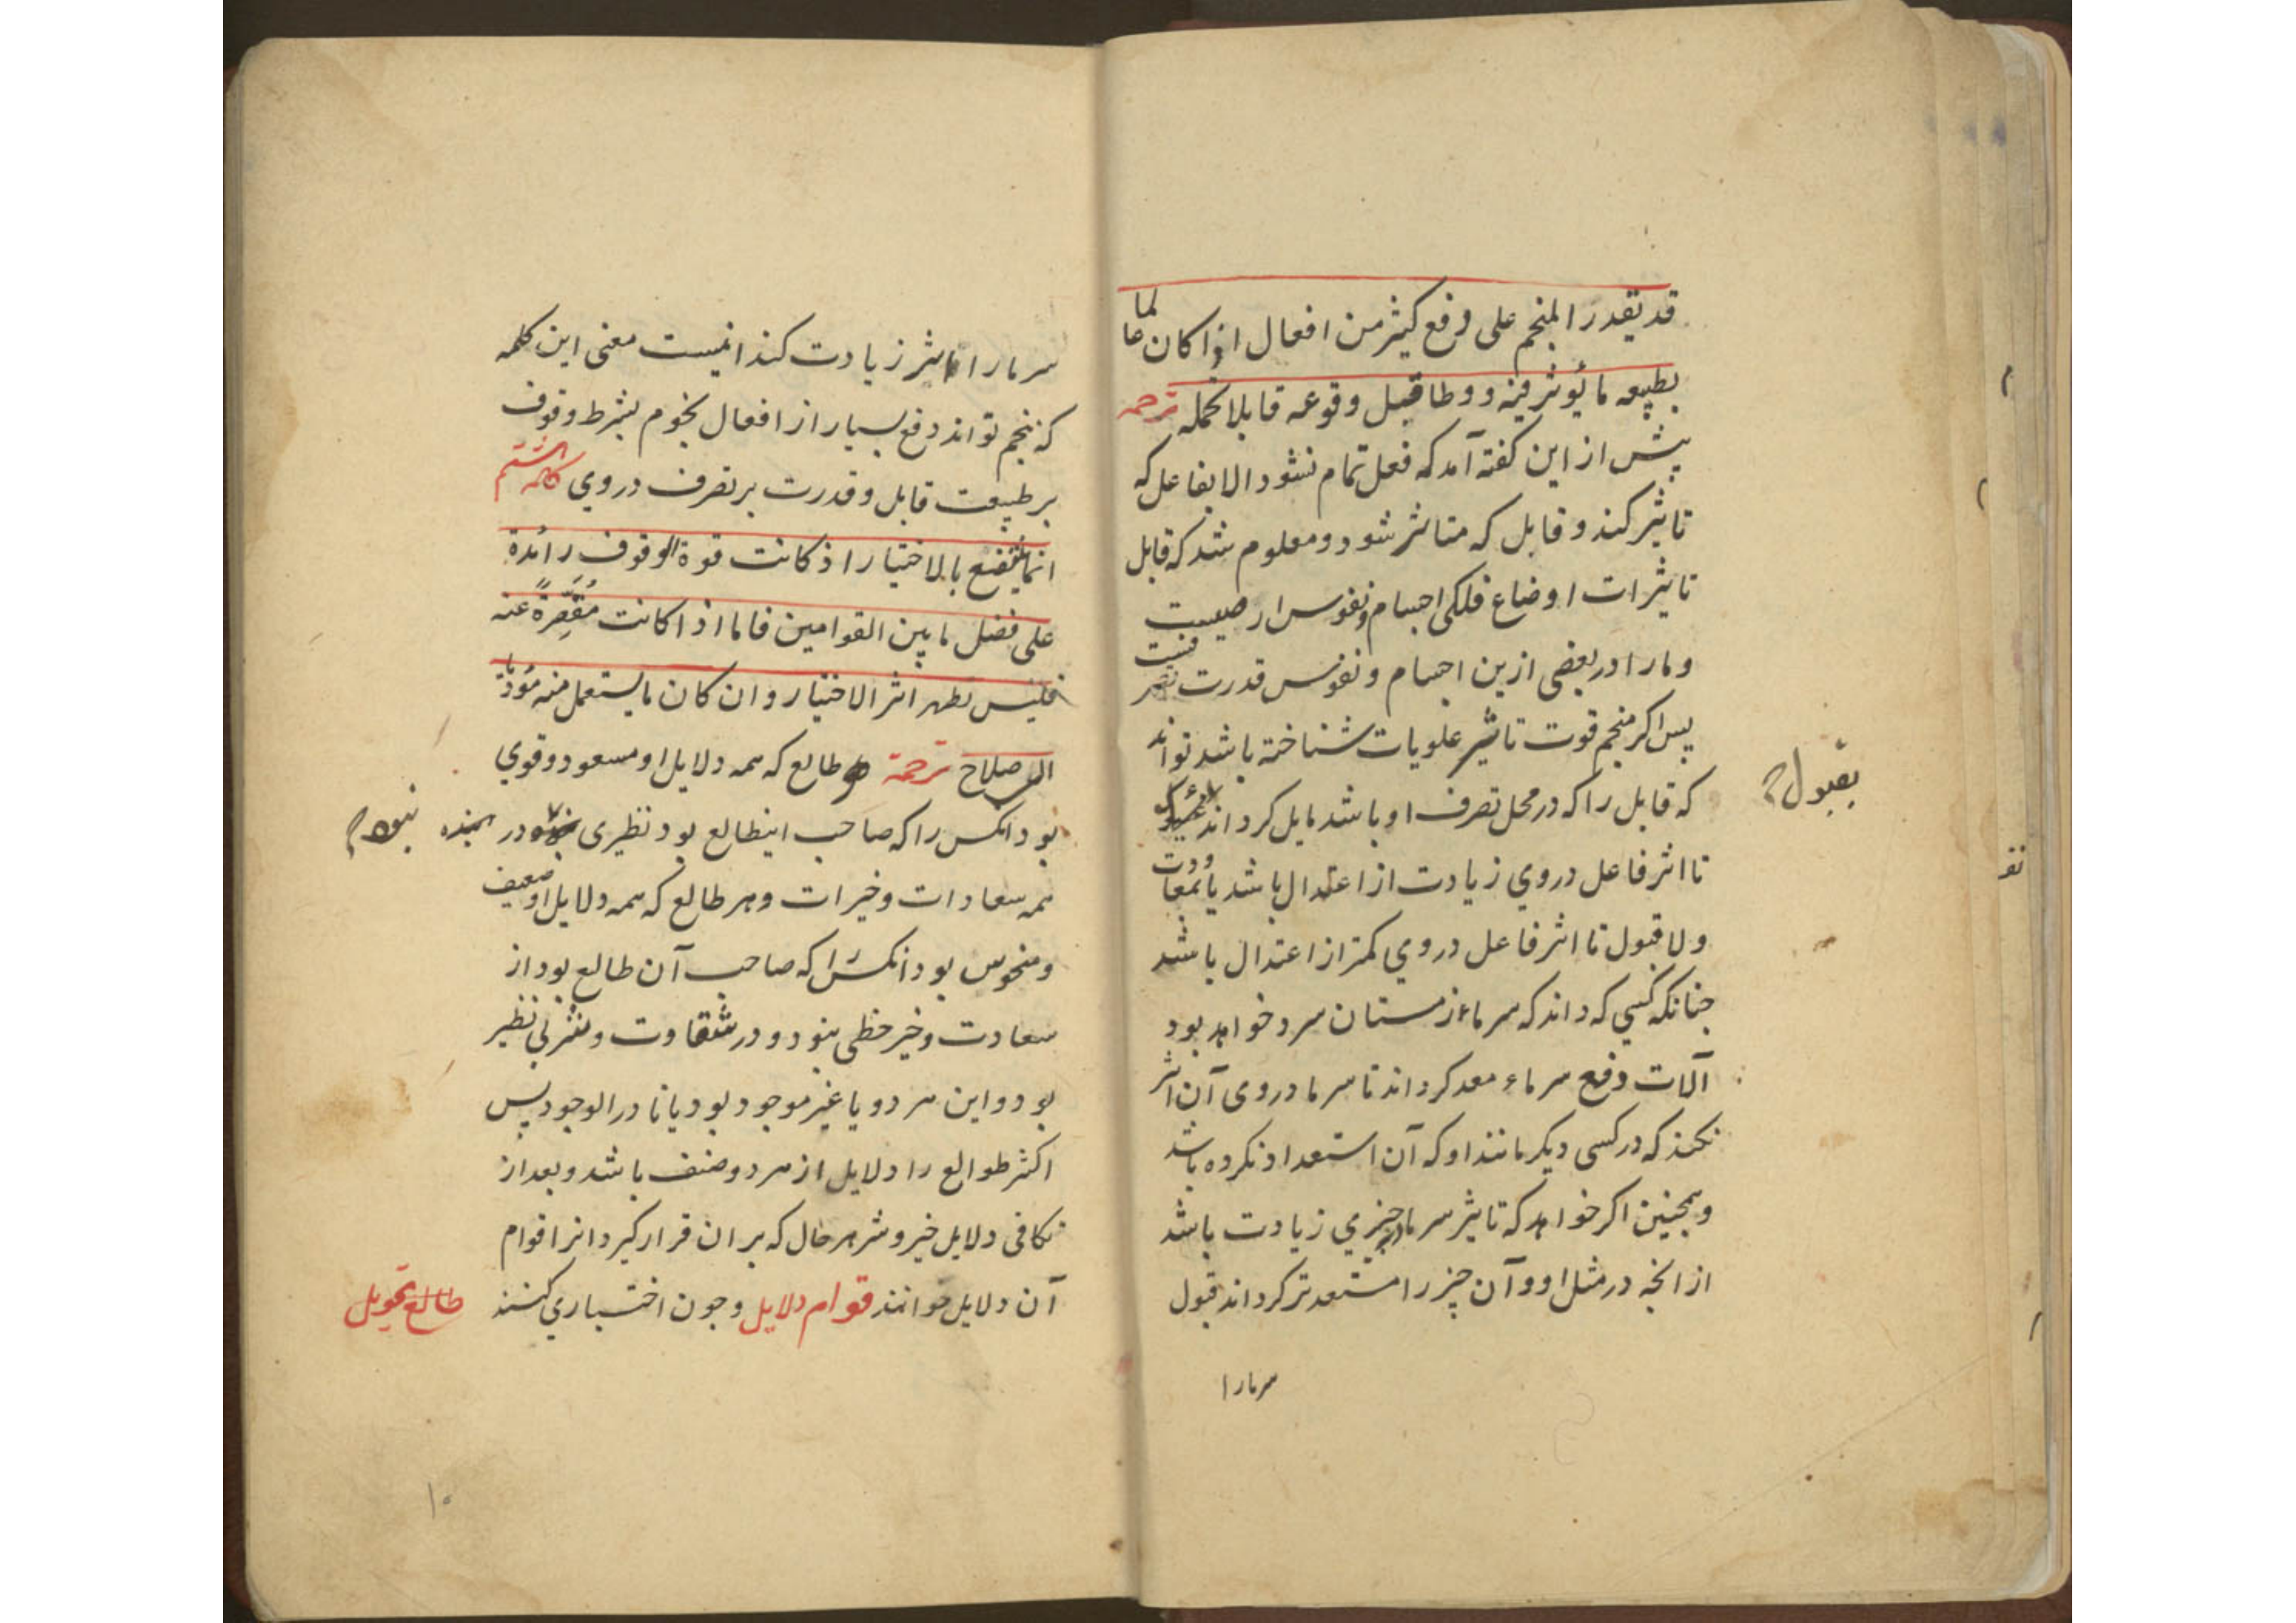 قد يقدر المنجم على دفع كثير من افعال اذا كان عالما
بطبيعه ما يوثر فيه و وطا قبيل وقوعه قابلا يحمله ترجمه
پيش از اين كفته آمد كه فعل تمام نشود الا بفاعل كه
تاثير كند و قابل كه متاثر شود و معلوم شد كه قابل
تاثيرات اوضاع فلكى اجسام و نفوس ارضيست
و ما را در بعضى ازين اجسام و نفوس قدرت تصرفست
پس اكر منجم قوت تاثير علويات شناخته باشد تواند
كه قابل را كه در محل تصرف او باشد مايل كرداند
بقبول
تا اثر فاعل در وي زيادت از اعتدال باشد يا بمعاودت
و لا قبول تا اثر فاعل در وي كمتر از اعتدال باشد
جنانكه كسي كه داند كه سرماء زمستان سرد خواهد بود
آلات دفع سرماء معد كرداند تا سرما در وى آن اثر
نكند كه در كسى ديكر مانند او كه آن استعداد نكرده باشد
و همجنين اكر خواهد كه تاثير سرما در جيزي زيادت باشد
از انجه در مثل او و آن جيز را مستعد تر كرداند قبول
سرما را
سرما را تا اثر زيادت كند اينست معنى اين كلمه
كه منجم تواند دفع بسيار از افعال نجوم بشرط وقوف
بر طبيعت قابل و قدرت بر تصرف در وي كلمه هشتم
انما ينتفع بالاختيار اذ كانت قوة الوقوف زائدة
على فضل ما بين القوامين فاما اذا كانت مُقَصِّرةً عنه
فليس تظهر اثر الاختيار و ان كان ما يستعمل منه مؤديا
الى صلاح ترجمة هر طالع كه همه دلايل او مسعود و قوي
بود انكس را كه صاحب اينطالع بود نظيرى نبود در
همه سعادات و خيرات و هر طالع كه همه دلايل او ضعيف
و منحوس بود انكس را كه صاحب آن طالع بود از
سعادت و خير حظى نبود و در شقاوت و شر بى نظير
بود و اين هر دو يا غير موجود بود يا نادر الوجود پس
اكثر طوالع را دلايل از هر دو صنف باشد و بعد از
تكافى دلايل خير و شر هر حال كه بر ان قرار كيرد انرا قوام
آن دلايل خوانند قوام دلايل و جون اختيارى كنند طالع تحويل
۱۰